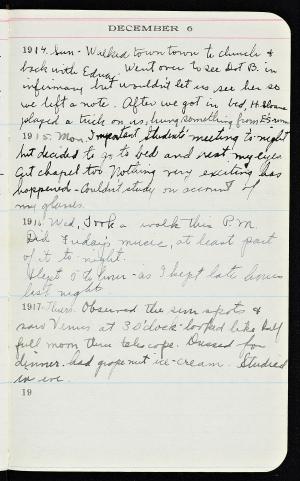 DECEMBER 6
1914. Sun- Walked town town to church &
back with Edna. Went over to see Dot B. in
infirmary but wouldn't let us see her so
we left a note. After we got in bed, H. Sloane
played a trick on us, hung something from
1915. Mon. Important Students' meeting to-night
but decided to go to bed and rest my eyes
Cut chapel too. Nothing very exciting has
happened - Couldn't study on account of
my glasses.
1916. Wed. Took a walk this P.M.
Did Friday's music, at least part
of it to-night.
Slept 5th hour - as I kept late hours
last night
1917. Thurs. Observed the sun spots &
saw Venus at 3 o'clock - looked like half
full moon thru telescope. Dressed for
dinner. had grapenut ice-cream. Studied
in eve.
19